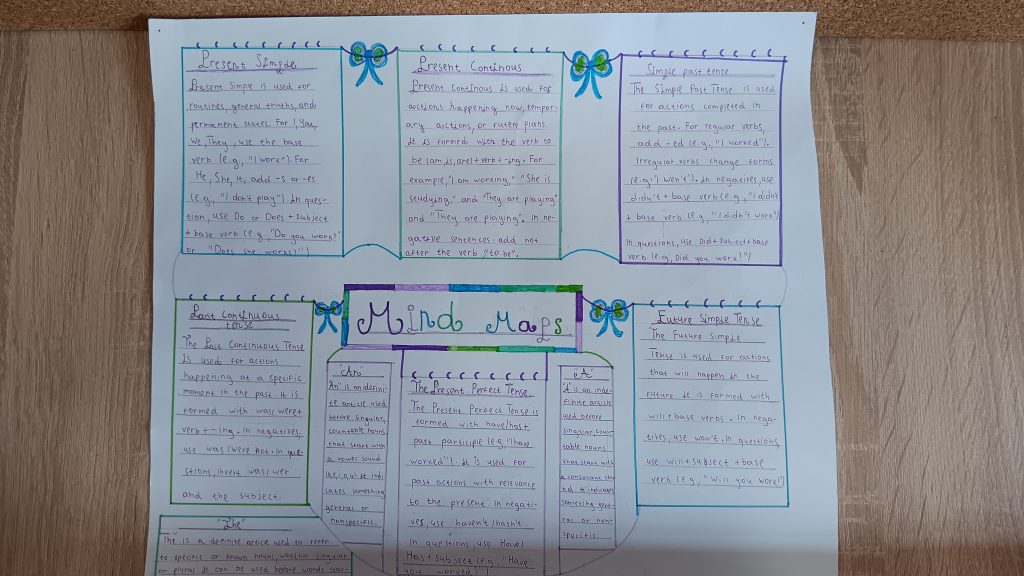 Present Simple
Present Simple is used for
routines, general truths, and
permanent states. For I, You,
We, They, use the base
verb (e.g., "I work"). For
He, She, It, add -s or -es
(e.g., "I don't play"). In ques-
tion, use Do or Does + subject
+ base verb (e.g., "Do you work?"
or "Does she works?")
Present Continous
Present Continous is used for
actions happening now, tempor-
ary actions, or future plans.
It is formed with the verb to
be (am, is, are) + verb + -ing. For
example, "I am working," "She is
studying," and "They are playing"
and "They are playing". In ne-
gative sentences add not
after the verb "to be".
Simple past tense
The Simple Past Tense is used
for actions completed in
the past. For regular verbs,
add -ed (e.g., "I worked").
Irregular verbs change forms
(e.g., "I went"). In negatives, use
didn't + base verb (e.g., "I didn't
+ base verb (e.g., "I didn't work")
In questions, use Did + subject + base
verb (e.g., Did you work?")
Mind Maps
Past Continuous
tense
The Past Continuous Tense
is used for actions
happening at a specific
moment in the past. It is
formed with was/were +
verb + -ing. In negatives,
use was/were not. In que-
stions, invert was/wer
and the subject.
"An"
"An" is an indefini-
te article used
before singular,
countable nouns
that start with
a vowel sound
It indi-
cates something
general or
nonspecific.
The Present Perfect Tense
The Present Perfect Tense is
formed with have/has +
past participle (e.g. "I have
worked"). It is used for
past actions with relevance
to the present. In negati-
ves, use haven't/hasn't.
In questions, use Have/
Has + subject (e.g., "Have
you worked?")
"A"
"A" is an inde-
finite article
used before
singular, coun-
table nouns
that start with
a consonant sou-
nd. It indicates
something gene-
ral or non-
specific.
Future Simple Tense
The Future Simple
Tense is used for actions
that will happen in the
future. It is formed with
will + base verbs. In nega-
tives, use won't. In questions,
use will + subject + base
verb (e.g., "Will you work?")
"The"
The is a definite article used to refer
to specific or known nouns, whether singular
or plural. It can be used before words star-